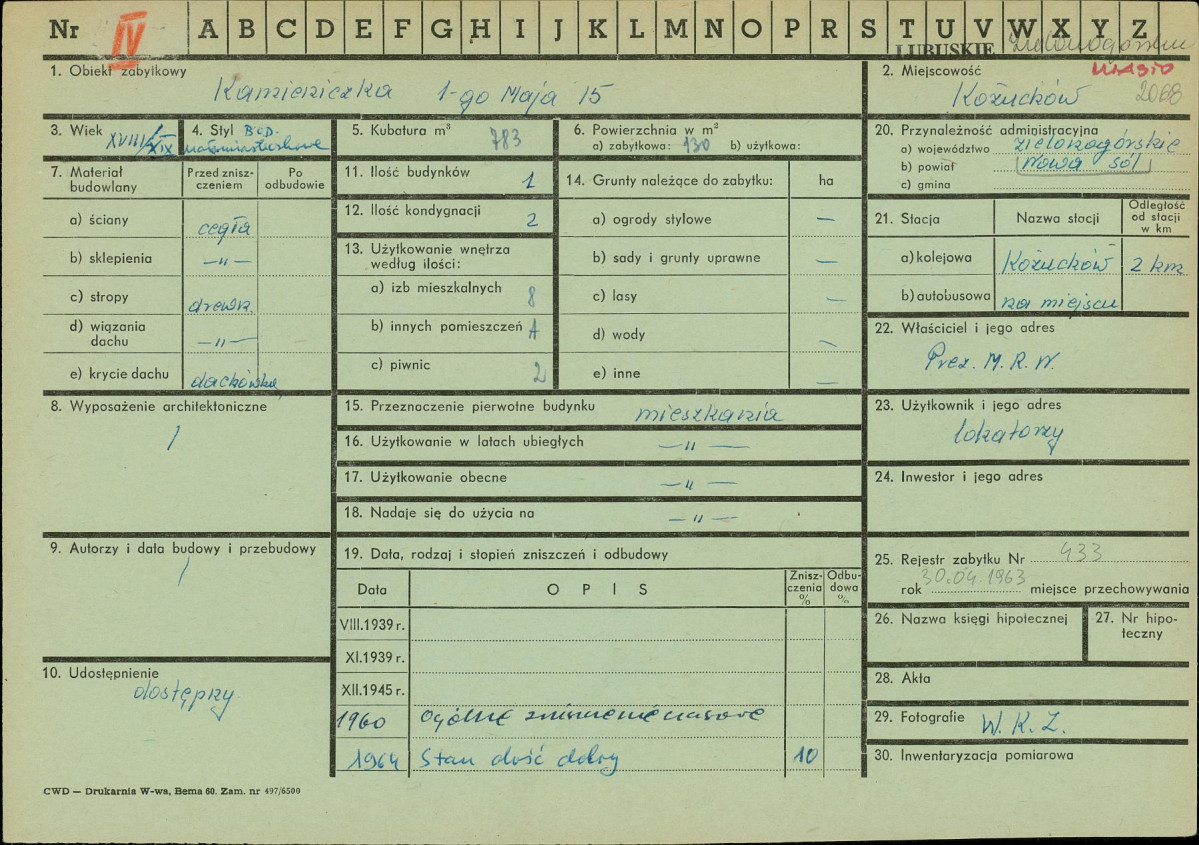 Nr IV A B C D E F G H I J K L M N O P R S T U V W X Y Z
LUBUSKIE
1. Obiekt zabytkowy
Kamieniczka 1-go Maja 15
2. Miejscowość MIASTO
Kożuchów 2088
3. Wiek XVIII/XIX
4. Styl Bud. małomiasteczkowe
5. Kubatura m³ 783
6. Powierzchnia w m²
a) zabytkowa: 130 b) użytkowa:
20. Przynależność administracyjna
a) województwo zielonogórskie
b) powiat Nowa Sól
c) gmina
7. Materiał budowlany
Przed zniszczeniem
Po odbudowie
a) ściany cegła
b) sklepienia —„—
c) stropy drewn.
d) wiązania dachu —„—
e) krycie dachu dachówka
11. Ilość budynków 1
12. Ilość kondygnacji 2
13. Użytkowanie wnętrza według ilości:
a) izb mieszkalnych 8
b) innych pomieszczeń 1
c) piwnic 2
14. Grunty należące do zabytku: ha
a) ogrody stylowe —
b) sady i grunty uprawne —
c) lasy —
d) wody —
e) inne —
21. Stacja
Nazwa stacji
Odległość od stacji w km
a) kolejowa Kożuchów 2 km
b) autobusowa na miejscu
22. Właściciel i jego adres
Prez. M. R. N.
8. Wyposażenie architektoniczne
/
15. Przeznaczenie pierwotne budynku mieszkania
16. Użytkowanie w latach ubiegłych —„—
17. Użytkowanie obecne —„—
18. Nadaje się do użycia na —„—
23. Użytkownik i jego adres
lokatorzy
24. Inwestor i jego adres
9. Autorzy i data budowy i przebudowy
/
19. Data, rodzaj i stopień zniszczeń i odbudowy
Data
O P I S
Zniszczenia %
Odbudowa %
VIII.1939 r.
XI.1939 r.
XII.1945 r.
1960 Ogólne zniszczenie czasowe
1964 Stan dość dobry 10
25. Rejestr zabytku Nr 433
rok 30.04.1963 miejsce przechowywania
26. Nazwa księgi hipotecznej
27. Nr hipoteczny
10. Udostępnienie
dostępny
28. Akta
29. Fotografie W. K. Z.
30. Inwentaryzacja pomiarowa
CWD — Drukarnia W-wa, Bema 60. Zam. nr 497/6500